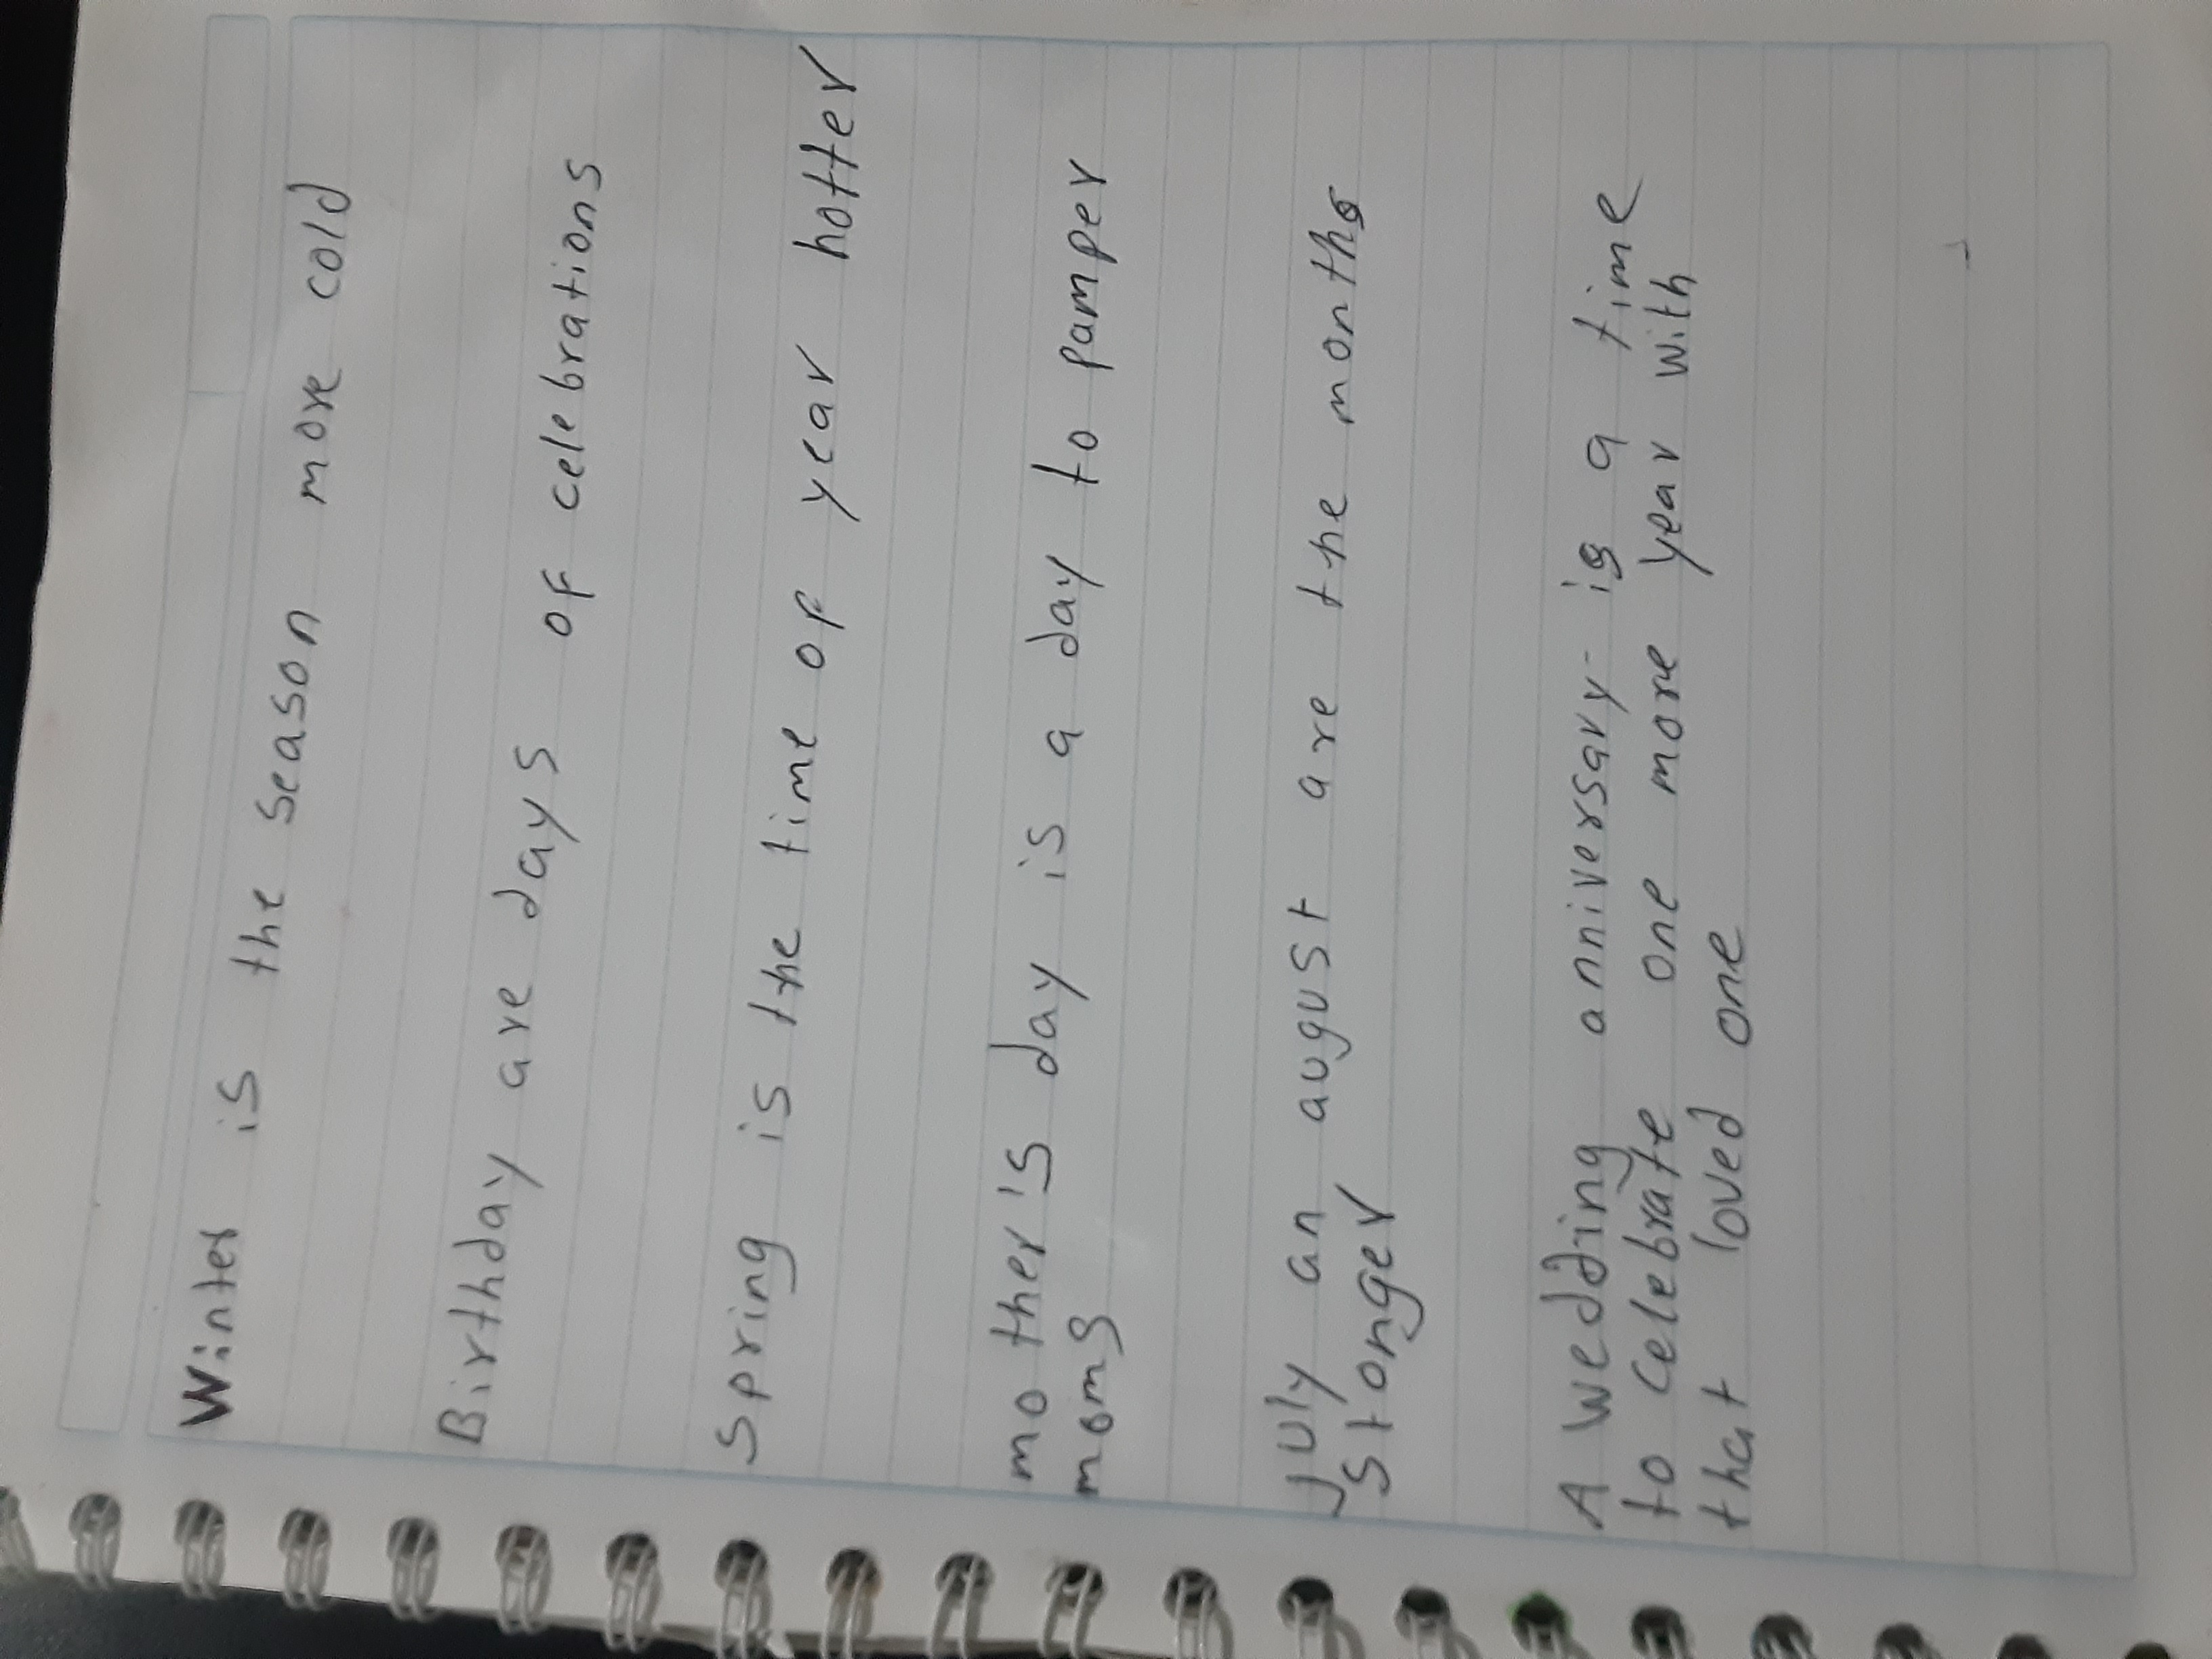 Winter is the season more cold
Birthday are days of celebrations
Spring is the time of year hotter
mother's day is a day to pamper
moms
July an august are the months
stonger
A wedding anniversary is a time
to celebrate one more year with
that loved one